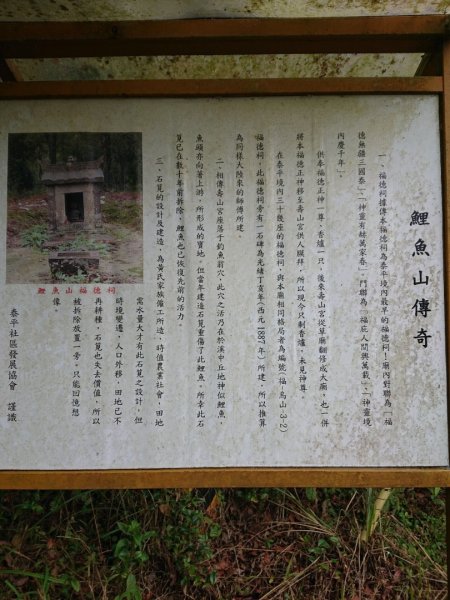 鯉魚山傳奇
一、福德祠據傳本福德祠為泰平境內最早的福德祠！廟內對聯為「福
德無疆三國泰」、「神靈有赫萬家春」門聯為「福庇人間興萬載」、「神靈境
內慶千年」。
供奉福德正神一尊，香爐一只，後來壽山宮從草廟翻修成大廟，也一併
將本福德正神移至壽山宮供人膜拜，所以現今只剩香爐，未見神尊。
在泰平境內三十幾座的福德祠，與本廟同格局者為編號（福-烏山-3-2）
福德祠，此福德祠旁有一石碑為光緒丁亥年（西元1887年）所建，所以推算
為同樣大陸來的師傅所建。
二、相傳壽山宮座落于釣魚前穴，此穴之活乃在於溪中丘地神似鯉魚，
魚頭亦向著上游，所形成的寶地。但當年建造石筧重傷了此鯉魚，所幸此石
筧已在數十年前拆除，鯉魚也已恢復先前的活力。
三、石筧的設計及建造，為黃氏家族僱工所造，時值農業社會，田地
需水量大才有此石筧之設計，但
時境變遷，人口外移，田地已不
再耕種，石筧也失去價值，所以
被拆除放置一旁，只能回憶想
像。
泰平社區發展協會 謹識
鯉魚山福德祠